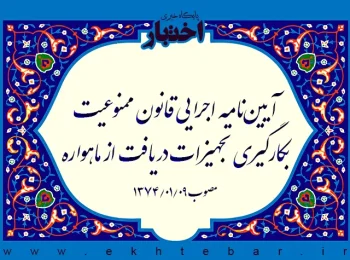 پایگاه خبری
اختبار
آیین‌نامه اجرایی قانون ممنوعیت
بکارگیری تجهیزات دریافت از ماهواره
مصوب ۱۳۷۴/۰۱/۰۹
www.ekhtebar.ir